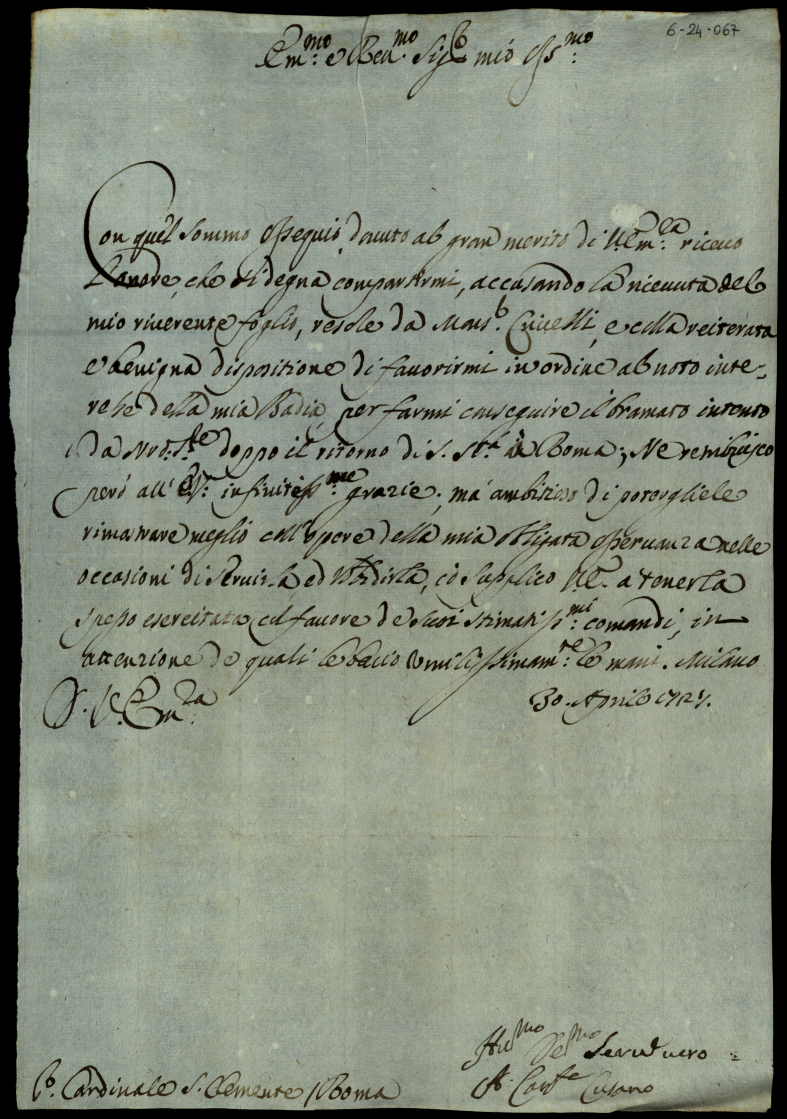 6-24-067
Em.mo e Reu.mo Sig.r mio Oss.mo
Con quel sommo ossequio, douuto al gran merito di V.Em.za riceuo
l'onore, che si degna compartirmi, accusando la riceuuta del
mio riuerente foglio, resole da Mons.r Criuelli, e colla reiterata
e benigna dispositione di fauorirmi in ordine al noto inte-
resse della mia Badia, per farmi conseguire il bramato intento
da Nro. S.re doppo il ritorno di S. St.à à Roma; Ne retribuisco
però all' E.V. infinitiss.me grazie; mà ambitioso di potergliele
rimostrare meglio coll'opere della mia obligata osseruanza nelle
occasioni di seruirla ed vbidirla, io supplico V.E. a tenerla
spesso esercitata col fauore de suoi stimatiss.mi comandi, in
attenzione de quali le bacio vmilissimam.te le mani. Milano
D. V. Em.za 30. Aprile 1727.
Hu.mo De.mo Seru.e uero
A. Con.te Cusano
S.r Cardinale S. Clemente / Roma